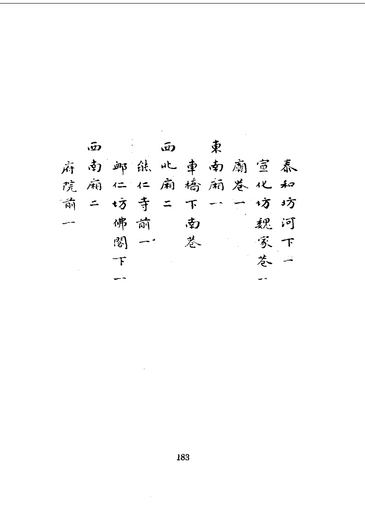 泰和坊河下一
宣化坊魏家巷一
廟巷一
東南廂一
車橋下南巷
西北廂二
能仁寺前一
鄉仁坊佛閣下一
西南廂二
府院前一
183